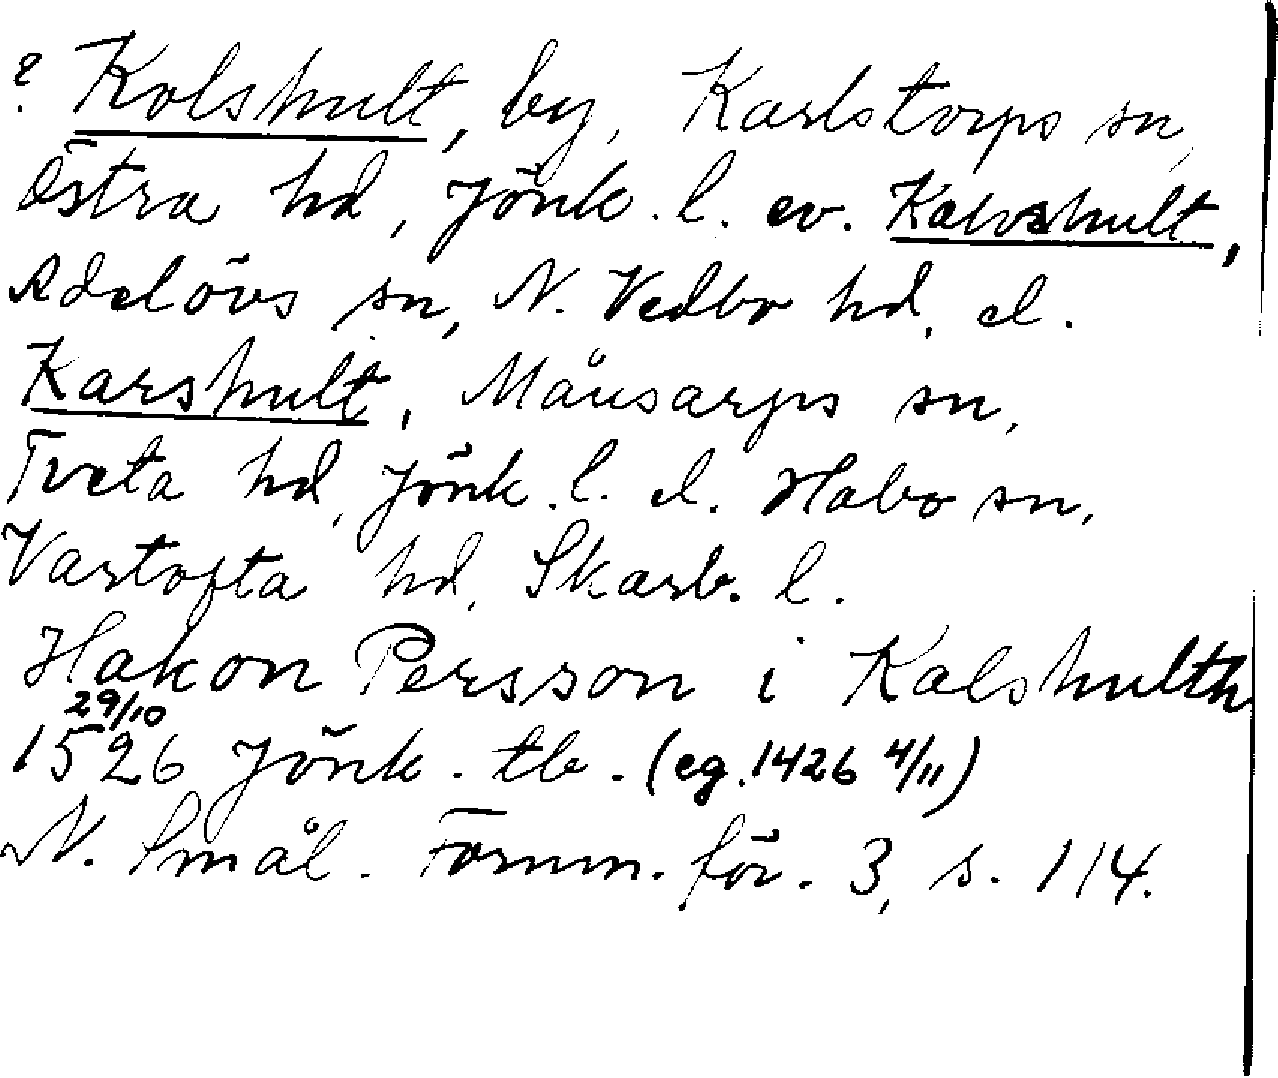 ? Kolshult, by, Karlstorps sn,
Östra hd, Jönk. l. ev. Kalvshult,
Adelövs sn, N. Vedbo hd, el.
Karshult, Månsarps sn,
Tveta hd, Jönk. l. el. Habo sn,
Vartofta hd, Skarb. l.
Hakon Persson i Kalshulth
29/10
1526 Jönk. tb. (eg. 1426 4/11)
N. Smål. Fornm. för. 3, s. 114.